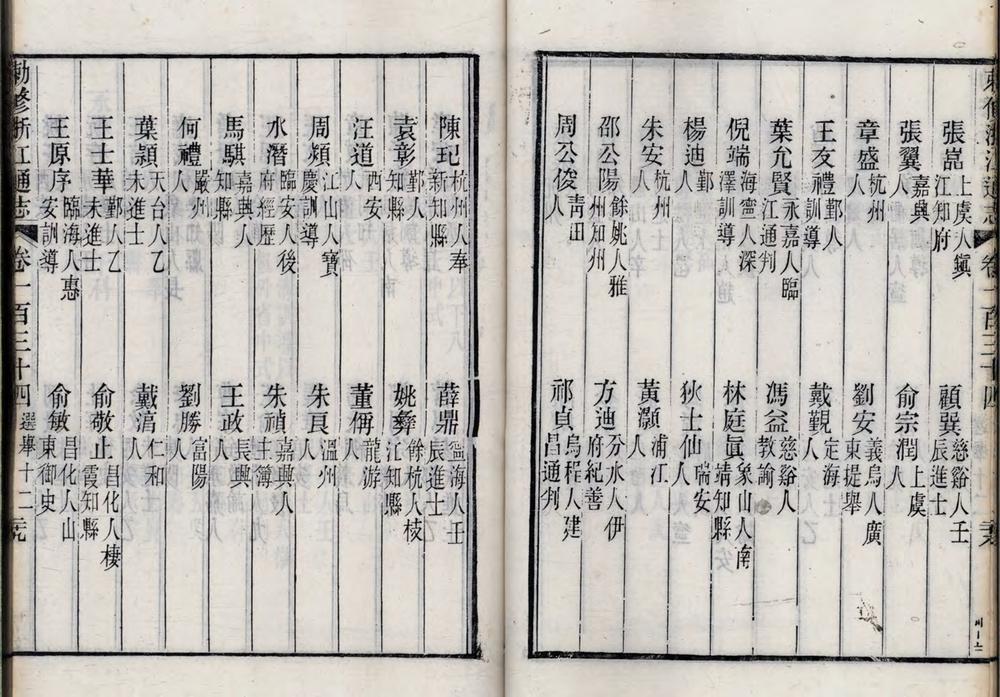 敕修浙江通志 卷一百三十四
張嵓 上虞人鎭江知府 顧巽 慈谿人壬辰進士
張翼 嘉興人 俞宗潤 上虞人
章盛 杭州人 劉安 義烏人廣東提舉
王友禮 鄞人訓導 戴覲 定海人
葉允賢 永嘉人臨江通判 馮益 慈谿人教諭
倪端 海寧人深澤訓導 林庭眞 象山人南靖知縣
楊迪 鄞人 狄士仙 瑞安人
朱安 杭州人 黃灝 浦江人
邵公陽 餘姚人雅州知州 方迪 分水人伊府紀善
周公俊 靑田人 祁貞 烏程人建昌通判
陳玘 杭州人奉新知縣 薛鼎 寧海人壬辰進士
袁彰 鄞人知縣 姚彝 餘杭人枝江知縣
汪道 西安人 董偁 龍游人
周頻 江山人寶慶訓導 朱良 溫州人
水潛 臨安人後府經歷 朱禎 嘉興人主簿
馬騏 嘉興人知縣 王政 長興人
何禮 嚴州人 劉勝 富陽人
葉頴 天台人乙未進士 戴㴠 仁和人
王士華 鄞人乙未進士 俞敬止 昌化人棲霞知縣
王原序 臨海人惠安訓導 俞敏 昌化人山東御史
勅修浙江通志 卷一百三十四 選舉十二